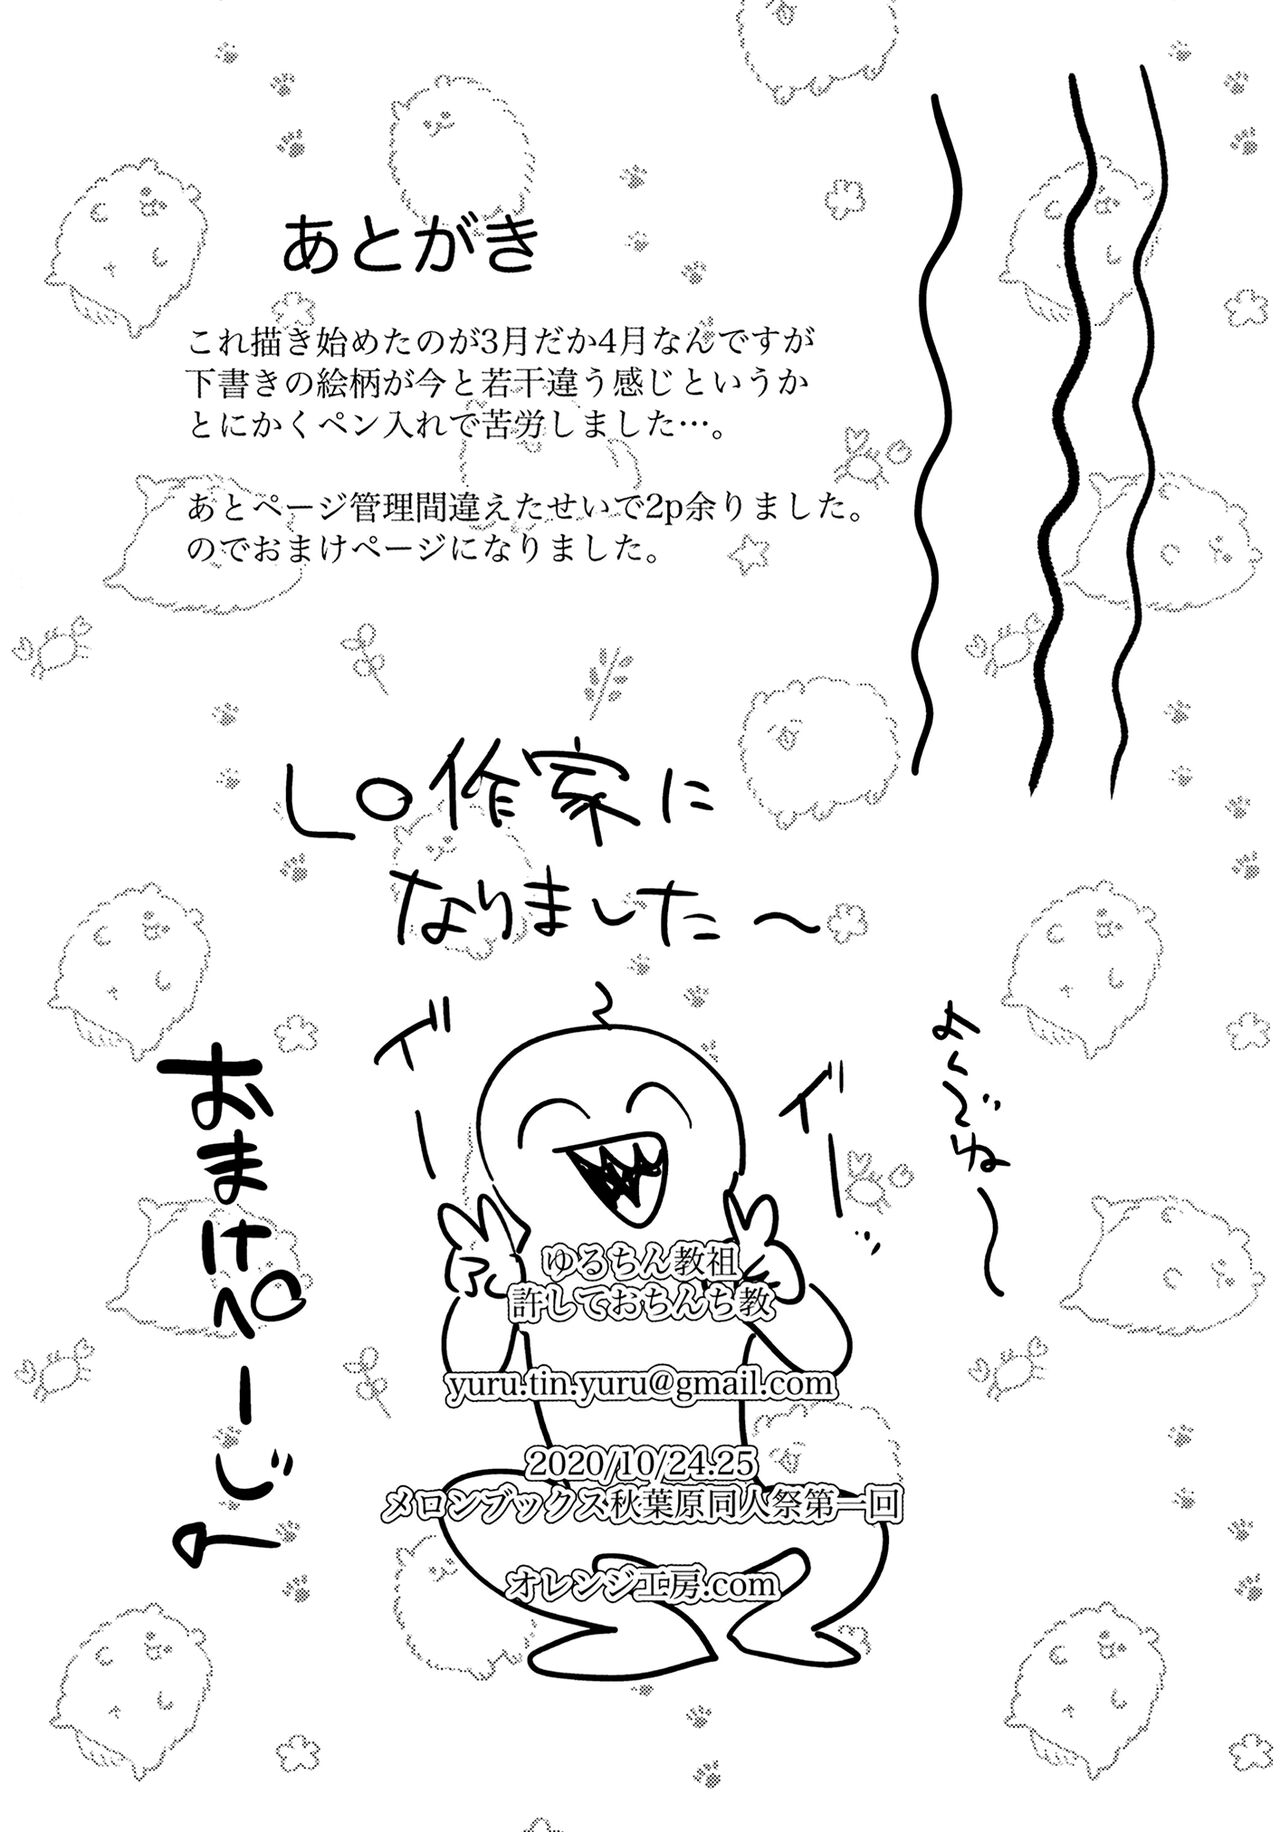 あとがき
これ描き始めたのが3月だか4月なんですが
下書きの絵柄が今と若干違う感じというか
とにかくペン入れで苦労しました…。
あとページ管理間違えたせいで2p余りました。
のでおまけページになりました。
LO作家に
なりました〜
イ゛ー
イ゛ー…
よくでね〜
おまけぺーじ
ゆるちん教祖
許しておちんち教
yuru.tin.yuru@gmail.com
2020/10/24.25
メロンブックス秋葉原同人祭第一回
オレンジ工房.com